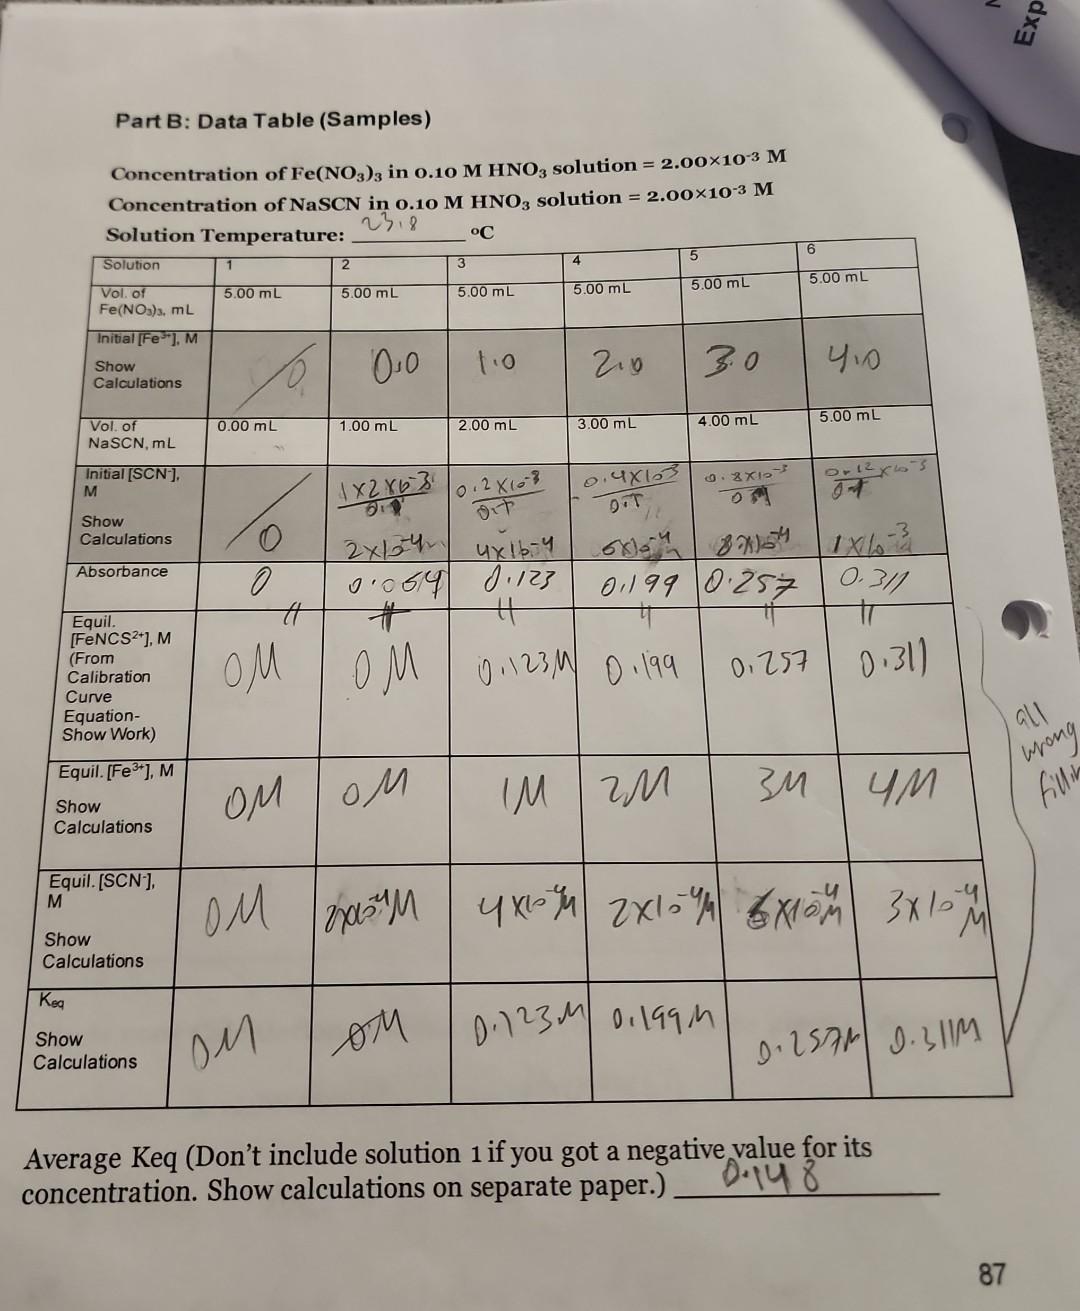 Exp
Part B: Data Table (Samples)
Concentration of Fe(NO3)3 in 0.10 M HNO3 solution = 2.00×10-3 M
Concentration of NaSCN in 0.10 M HNO3 solution = 2.00×10-3 M
Solution Temperature: 23.8 °C
Solution 1 2 3 4 5 6
Vol. of Fe(NO3)3, mL 5.00 mL 5.00 mL 5.00 mL 5.00 mL 5.00 mL 5.00 mL
Initial [Fe3+], M
Show Calculations
0 0.0 1.0 2.0 3.0 4.0
Vol. of NaSCN, mL 0.00 mL 1.00 mL 2.00 mL 3.00 mL 4.00 mL 5.00 mL
Initial [SCN-], M
1×2×10-3 0.2×10-3 0.4×103 0.8×10-3
Show Calculations
0 2×10-4M 4×10-4 1×10-3
Absorbance 0 0.064 0.123 0.199 0.257 0.311
Equil. [FeNCS2+], M
(From Calibration Curve Equation- Show Work)
0M 0M 0.123M 0.199 0.257 0.311
all wrong
Equil. [Fe3+], M
Show Calculations
0M 0M 1M 2M 3M 4M
Equil. [SCN-], M
Show Calculations
0M 2×10-4M 4×10-4M 2×10-4M 3×10-4M
Keq
Show Calculations
0M 0M 0.123M 0.199M 0.257M 0.311M
Average Keq (Don't include solution 1 if you got a negative value for its
concentration. Show calculations on separate paper.) 0.148
87